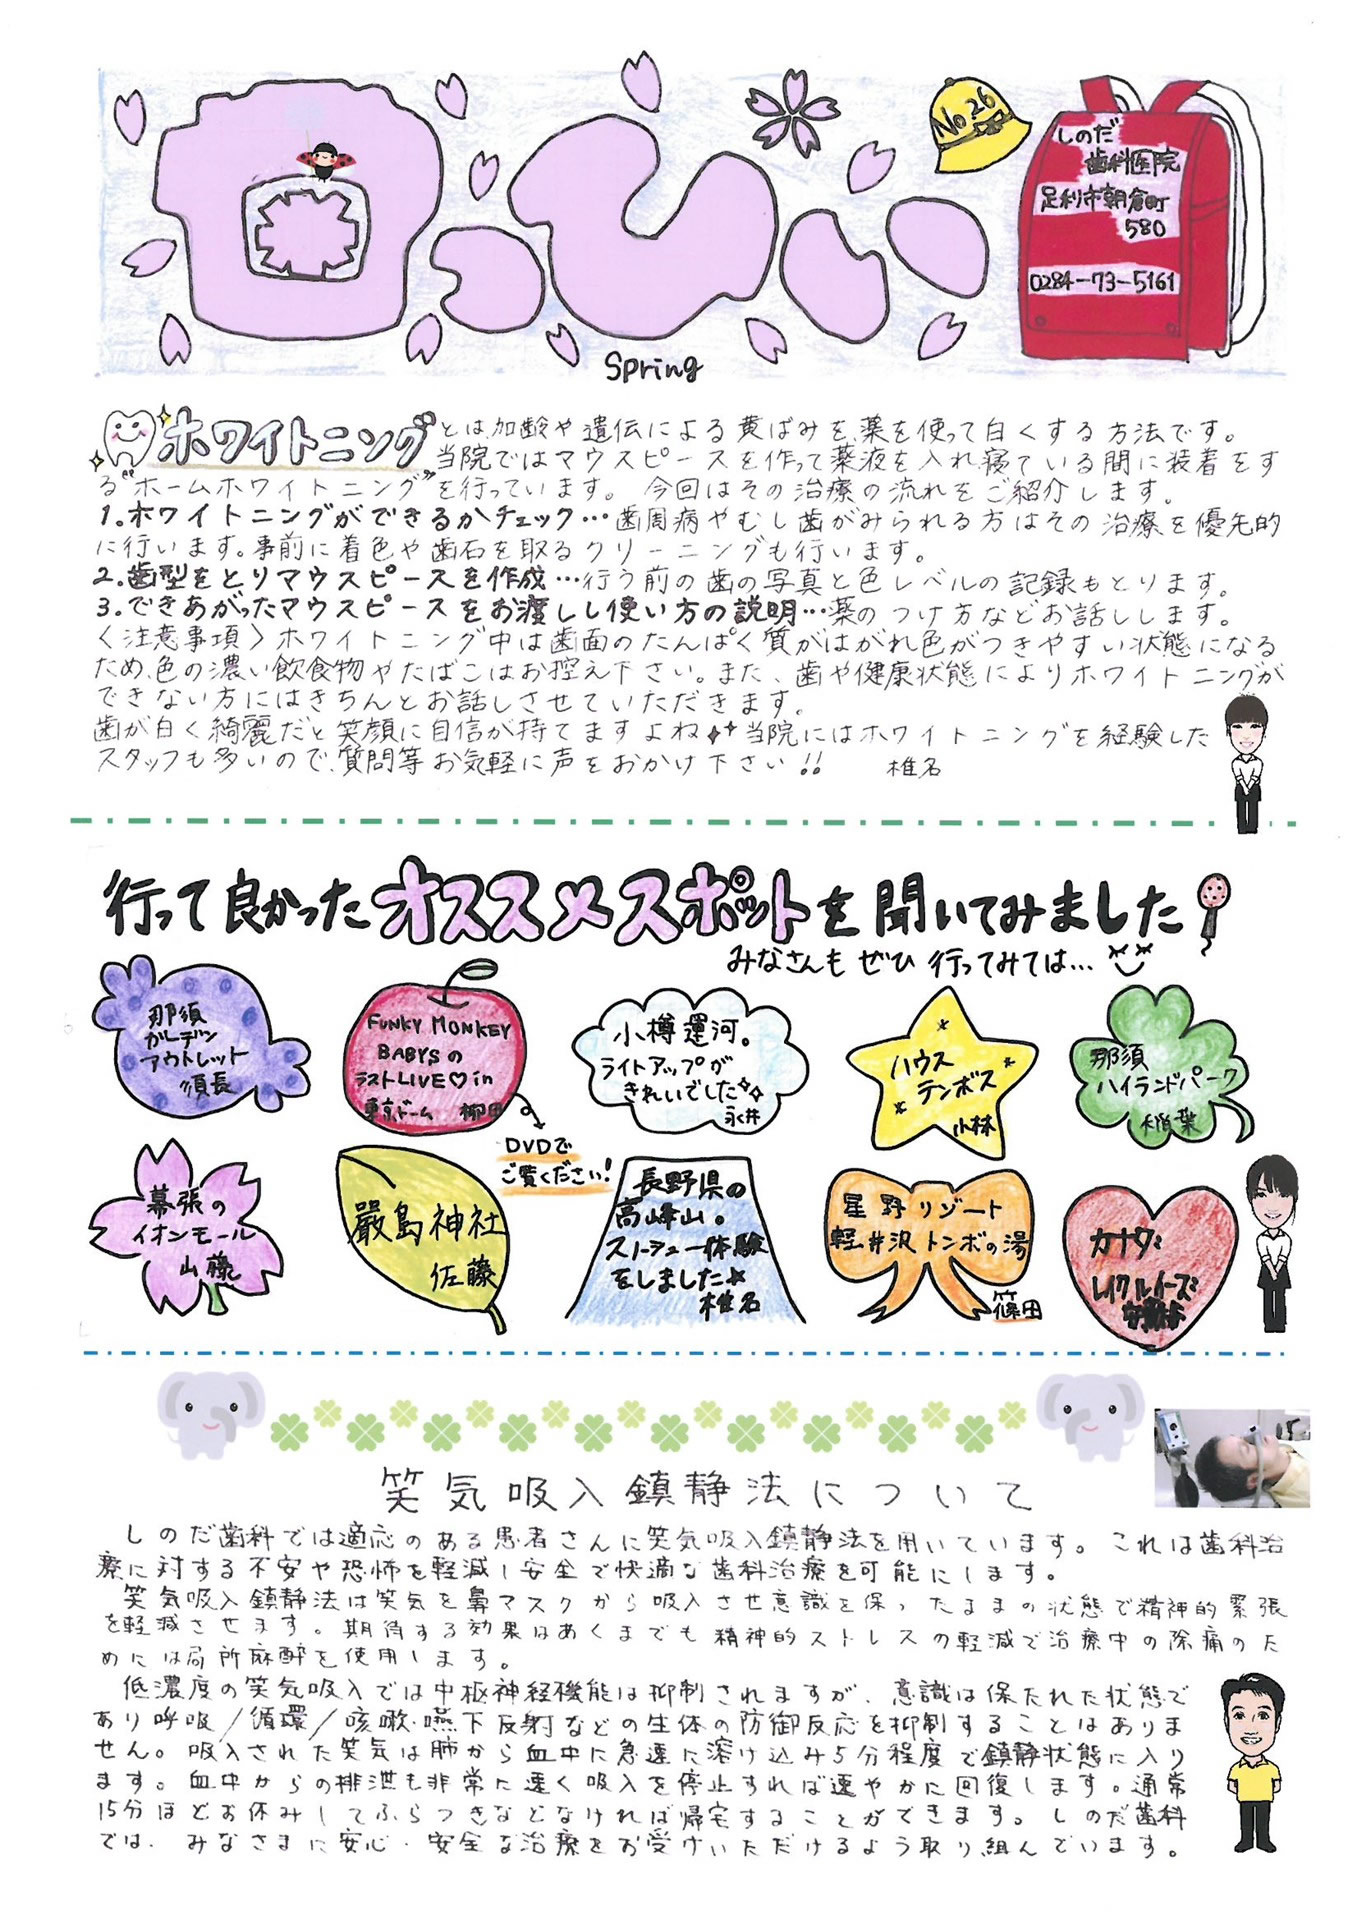 ロっひぃ
No.26
しのだ
歯科医院
足利市朝倉町
580
0284-73-5161
Spring
ホワイトニングとは、加齢や遺伝による黄ばみを、薬を使って白くする方法です。
当院ではマウスピースを作って薬液を入れ、寝ている間に装着をす
る“ホームホワイトニング”を行っています。 今回はその治療の流れをご紹介します。
1.ホワイトニングができるかチェック…歯周病やむし歯がみられる方はその治療を優先的
に行います。事前に着色や歯石を取るクリーニングも行います。
2.歯型をとりマウスピースを作成…行う前の歯の写真と色レベルの記録もとります。
3.できあがったマウスピースをお渡しし使い方の説明…薬のつけ方などお話しします。
〈注意事項〉ホワイトニング中は歯面のたんぱく質がはがれ色がつきやすい状態になる
ため、色の濃い飲食物やたばこはお控え下さい。また、歯や健康状態によりホワイトニングが
できない方にはきちんとお話しさせていただきます。
歯が白く綺麗だと笑顔に自信が持てますよね 当院にはホワイトニングを経験した
スタッフも多いので、質問等お気軽に声をおかけ下さい!! 椎名
行って良かったオススメスポットを聞いてみました
みなさんも ぜひ 行ってみては…
那須
ガーデン
アウトレット
須長
FUNKY MONKEY
BABYSの
ラストLIVE♡in
東京ドーム 柳田
DVDで
ご覧ください!
小樽運河。
ライトアップが
きれいでした
永井
ハウス
テンボス
小林
那須
ハイランドパーク
稲葉
幕張の
イオンモール
山藤
厳島神社
佐藤
長野県の
高峰山。
スノーシュー体験
をしました★
椎名
星野リゾート
軽井沢トンボの湯
篠田
カナダ:
レイクルイーズ:
笑気吸入鎮静法について
しのだ歯科では適応のある患者さんに笑気吸入鎮静法を用いています。これは歯科治
療に対する不安や恐怖を軽減し安全で快適な歯科治療を可能にします。
笑気吸入鎮静法は笑気を鼻マスクから吸入させ意識を保ったままの状態で精神的緊張
を軽減させます。期待する効果はあくまでも精神的ストレスの軽減で治療中の除痛のた
めには局所麻酔を使用します。
低濃度の笑気吸入では中枢神経機能は抑制されますが、意識は保たれた状態で
あり呼吸/循環/咳嗽・嚥下反射などの生体の防御反応を抑制することはありま
せん。吸入された笑気は肺から血中に急速に溶け込み5分程度で鎮静状態に入り
ます。血中からの排泄も非常に速く吸入を停止すれば速やかに回復します。通常
15分ほどお休みしてふらつきなどなければ帰宅することができます。しのだ歯科
では、みなさまに安心・安全な治療をお受けいただけるよう取り組んでいます。